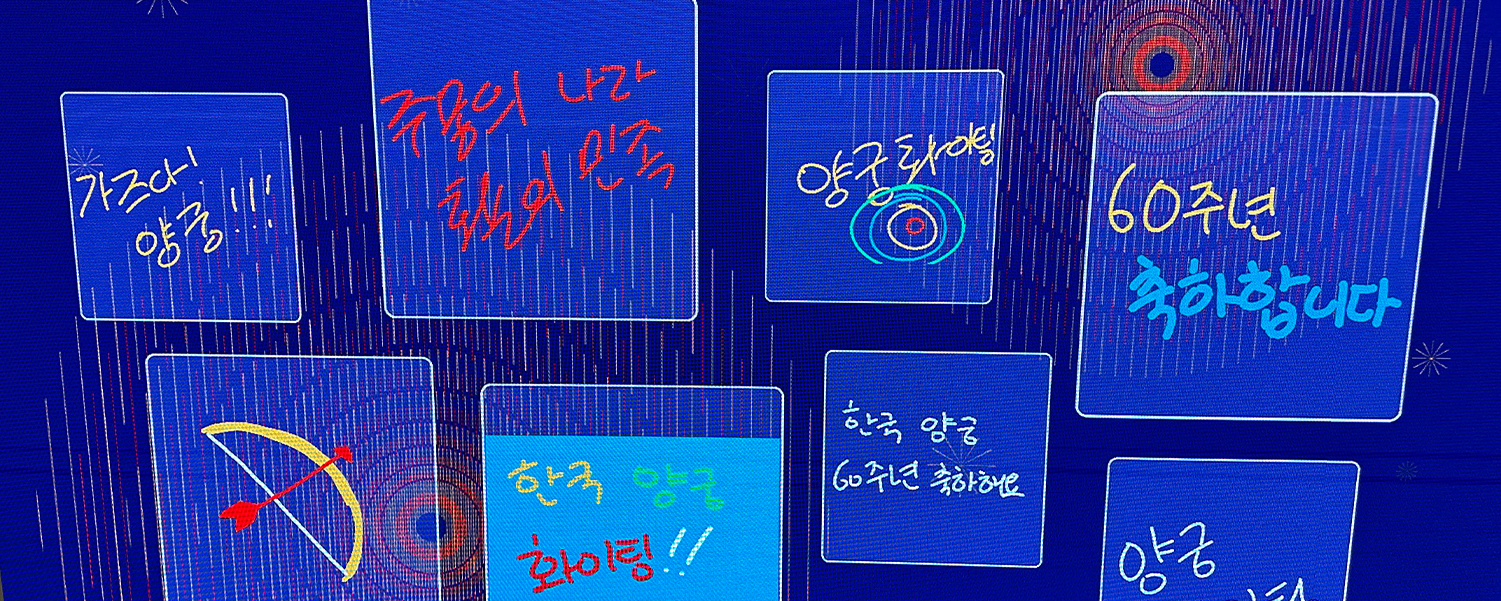 가즈아!
양궁!!!
주몽의 나라
활의 민족
양궁 화이팅
60주년
축하합니다
한국 양궁
화이팅!!
한국 양궁
60주년 축하해요
양궁